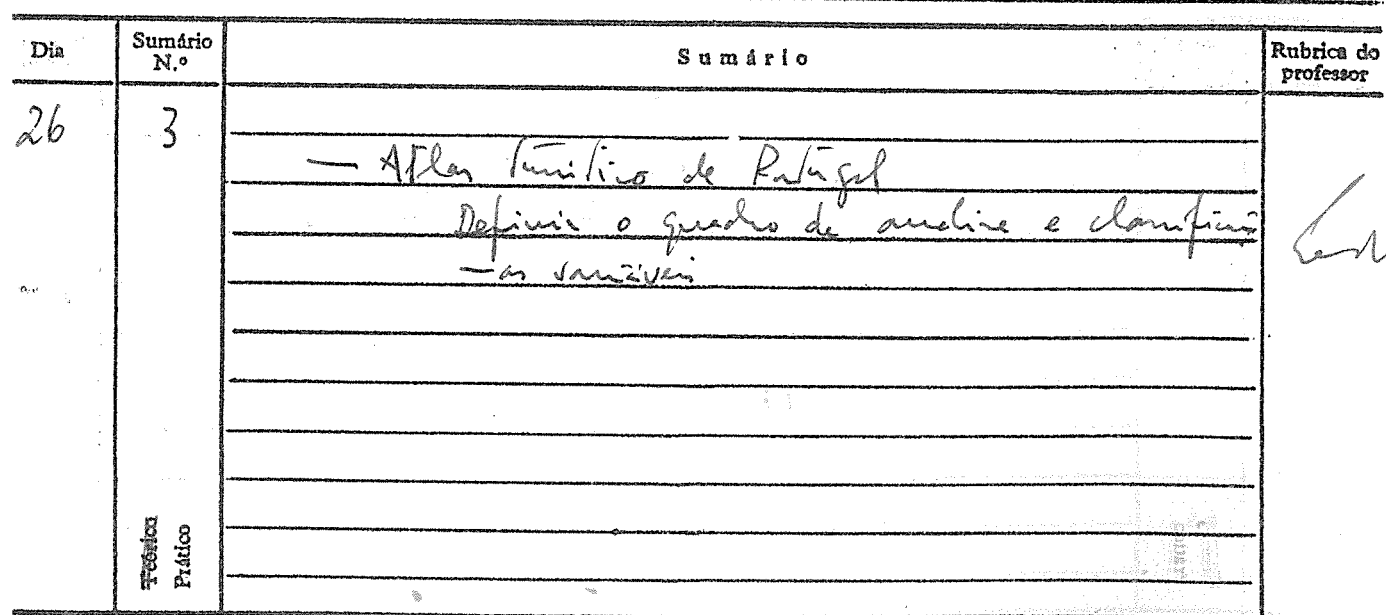 Dia Sumário N.º Sumário Rubrica do professor
26 3
— Atlas Turístico de Portugal
Definir o quadro de análise e classificação
— as variáveis
Teórico
Prático